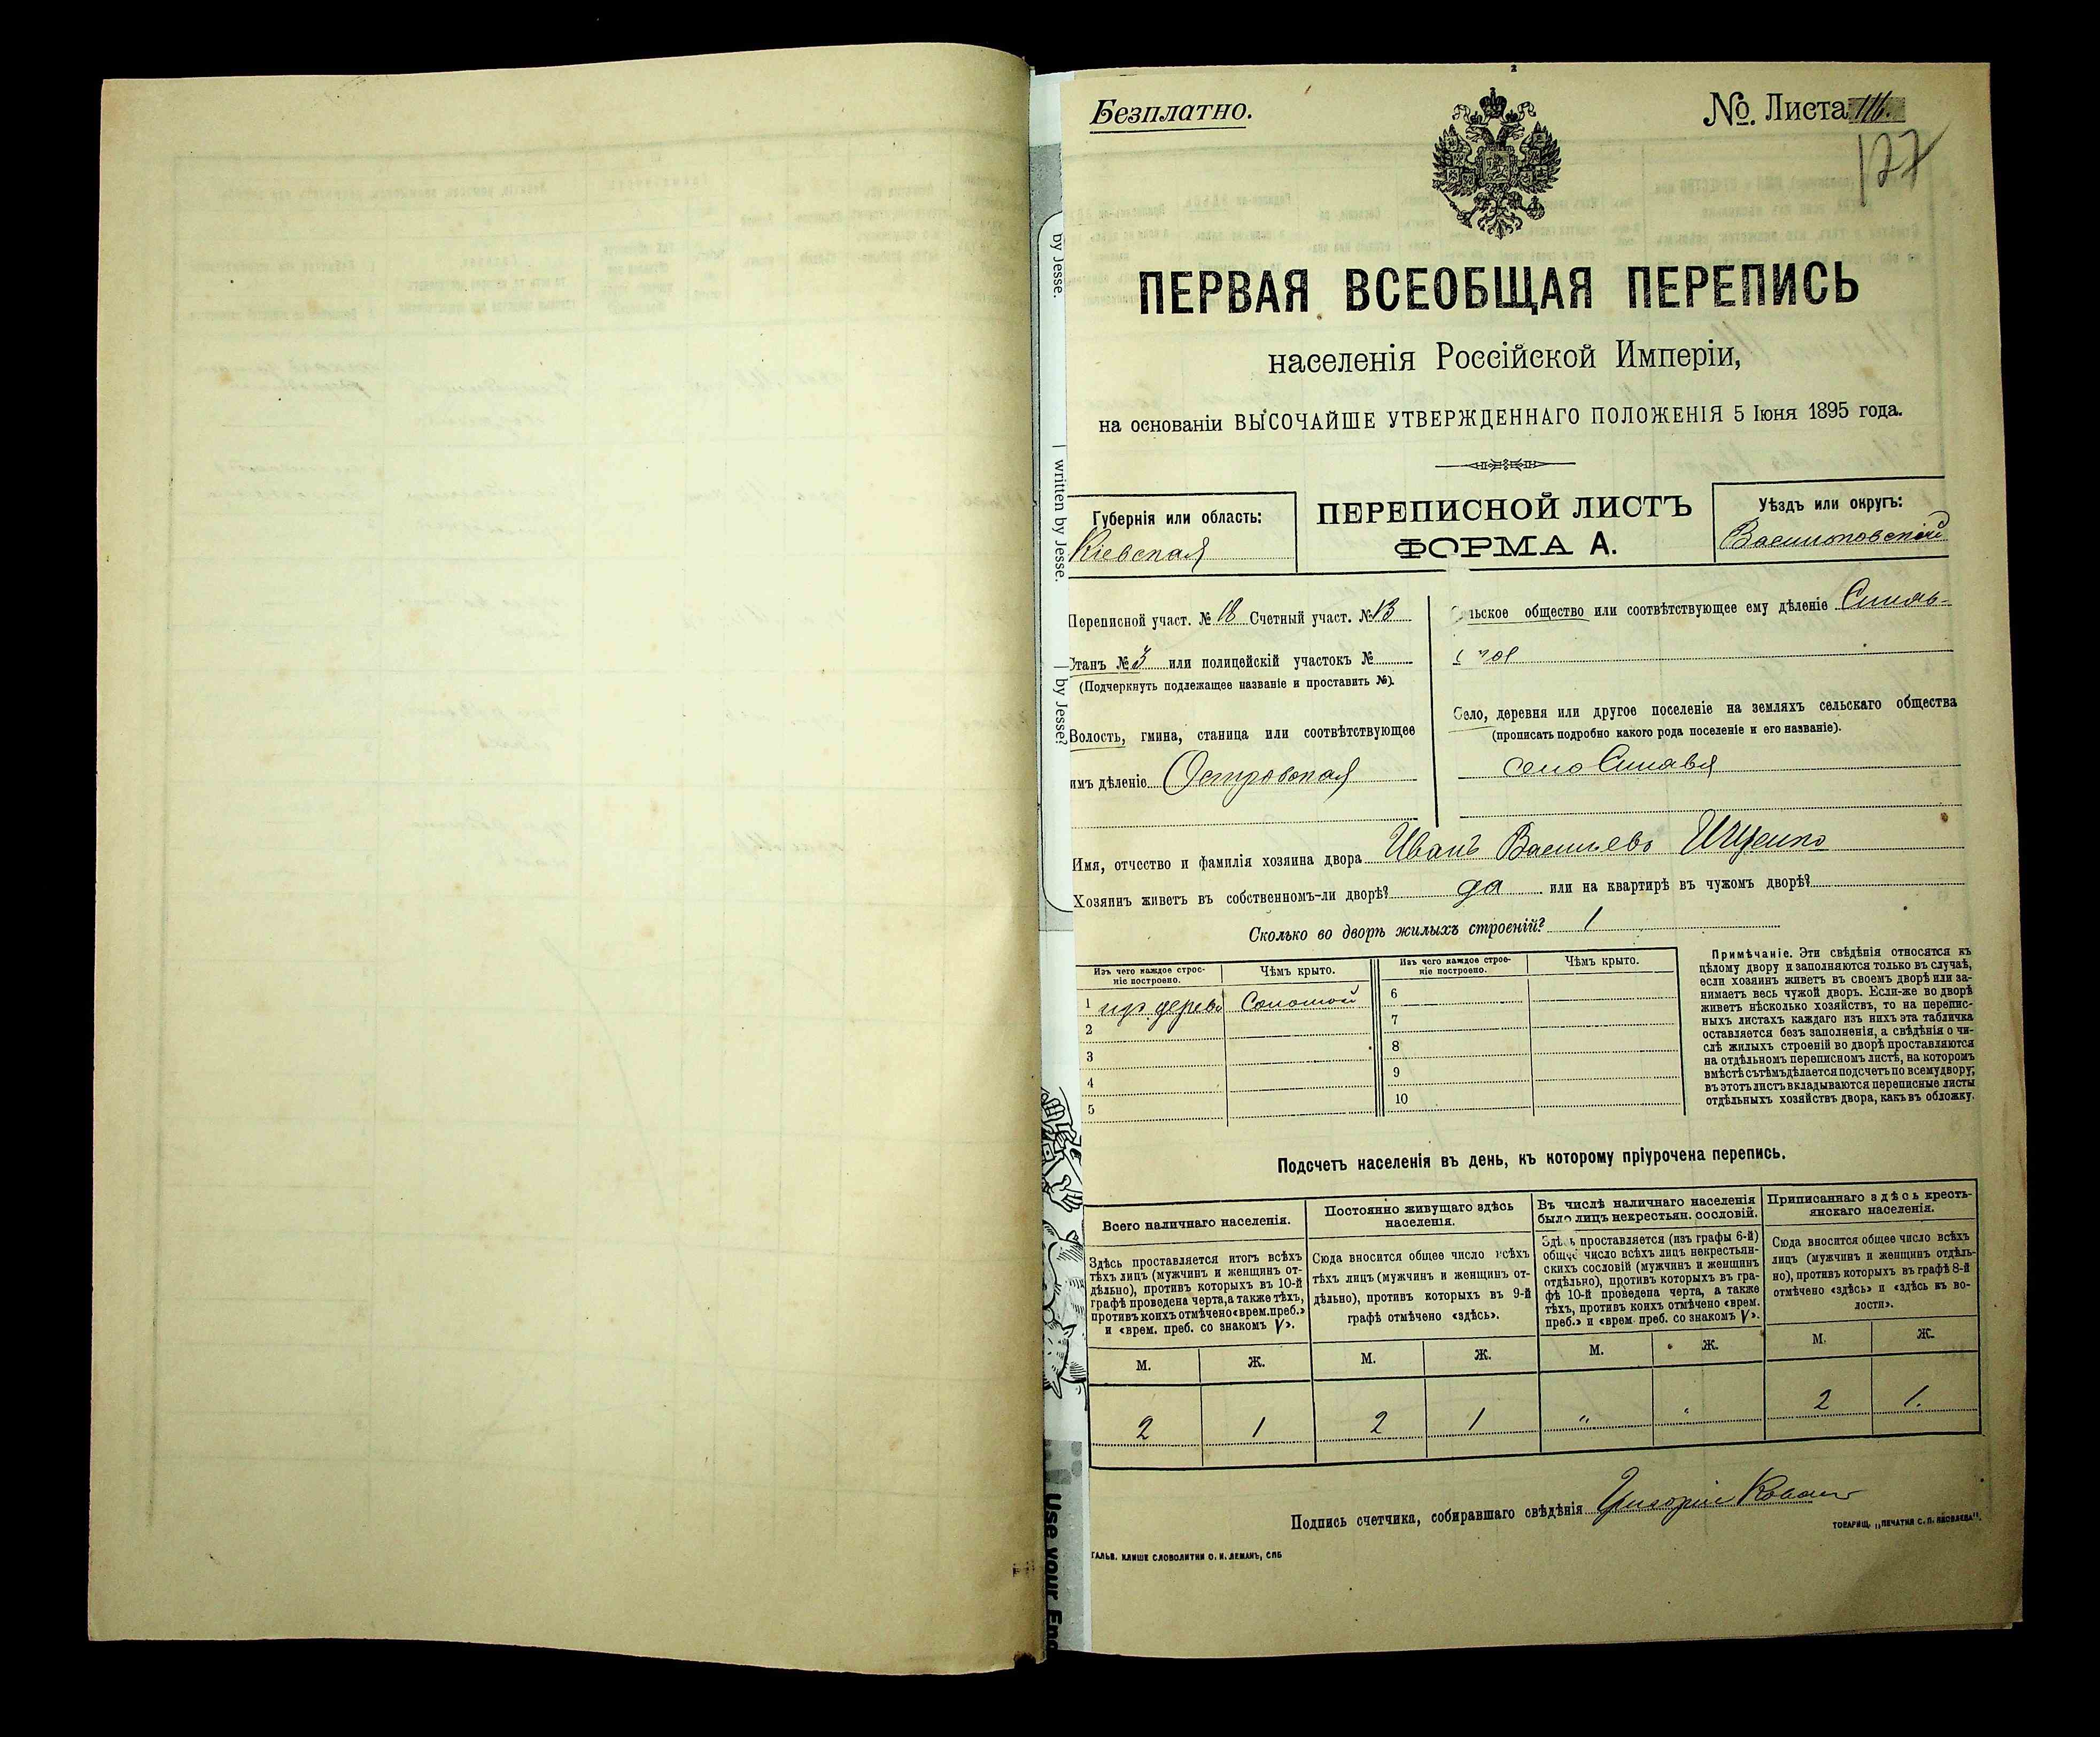 Безплатно.
№. Листа 116.
127
ПЕРВАЯ ВСЕОБЩАЯ ПЕРЕПИСЬ
населенія Россійской Имперіи,
на основаніи ВЫСОЧАЙШЕ УТВЕРЖДЕННАГО ПОЛОЖЕНІЯ 5 Іюня 1895 года.
Губернія или область:
Кіевская
ПЕРЕПИСНОЙ ЛИСТЪ
ФОРМА А.
Уѣздъ или округъ:
Васильковскій
Переписной участ. № 18 Счетный участ. № 13
Станъ № 3 или полицейскій участокъ №
(Подчеркнуть подлежащее названіе и проставить №).
Волость, гмина, станица или соотвѣтствующее
имъ дѣленіе Островская
льское общество или соотвѣтствующее ему дѣленіе Синяв-
ское
Село, деревня или другое поселеніе на земляхъ сельскаго общества
(прописать подробно какого рода поселеніе и его названіе).
село Синава
Имя, отчество и фамилія хозяина двора Иванъ Васильевъ Ищенко
Хозяинъ живетъ въ собственномъ-ли дворѣ? да или на квартирѣ въ чужомъ дворѣ?
Сколько во дворѣ жилыхъ строеній? 1
Изъ чего каждое строе-
ніе построено.
Чѣмъ крыто.
Изъ чего каждое строе-
ніе построено.
Чѣмъ крыто.
1 изъ дерева Соломой
2
3
4
5
6
7
8
9
10
Примѣчаніе. Эти свѣдѣнія относятся къ
цѣлому двору и заполняются только въ случаѣ,
если хозяинъ живетъ въ своемъ дворѣ или за-
нимаетъ весь чужой дворъ. Если-же во дворѣ
живетъ нѣсколько хозяйствъ, то на перепис-
ныхъ листахъ каждаго изъ нихъ эта табличка
оставляется безъ заполненія, а свѣдѣнія о чи-
слѣ жилыхъ строеній во дворѣ проставляются
на отдѣльномъ переписномъ листѣ, на которомъ
вмѣстѣ съ тѣмъ дѣлается подсчетъ по всему двору;
въ этотъ листъ вкладываются переписные листы
отдѣльныхъ хозяйствъ двора, какъ въ обложку.
Подсчетъ населенія въ день, къ которому пріурочена перепись.
Всего наличнаго населенія.
Здѣсь проставляется итогъ всѣхъ
тѣхъ лицъ (мужчинъ и женщинъ от-
дѣльно), противъ которыхъ въ 10-й
графѣ проведена черта, а также тѣхъ,
противъ коихъ отмѣчено «врем. преб.»
и «врем. преб. со знакомъ V».
Постоянно живущаго здѣсь
населенія.
Сюда вносится общее число всѣхъ
тѣхъ лицъ (мужчинъ и женщинъ от-
дѣльно), противъ которыхъ въ 9-й
графѣ отмѣчено «здѣсь».
Въ числѣ наличнаго населенія
было лицъ некрестьян. сословій.
Здѣсь проставляется (изъ графы 6-й)
общее число всѣхъ лицъ некрестьян-
скихъ сословій (мужчинъ и женщинъ
отдѣльно), противъ которыхъ въ гра-
фѣ 10-й проведена черта, а также
тѣхъ, противъ коихъ отмѣчено «врем.
преб.» и «врем. преб. со знакомъ V».
Приписаннаго здѣсь кресть-
янскаго населенія.
Сюда вносится общее число всѣхъ
лицъ (мужчинъ и женщинъ отдѣль-
но), противъ которыхъ въ графѣ 8-й
отмѣчено «здѣсь» и «здѣсь къ во-
лости».
М. Ж. М. Ж. М. Ж. М. Ж.
2 1 2 1 " " 2 1.
Подпись счетчика, собиравшаго свѣдѣнія Григорій
ГАЛЬВ. КЛИШЕ СЛОВОЛИТНИ О. И. ЛЕМАНЪ, СПБ
ТОВАРИЩ. „ПЕЧАТНЯ С. П. ЯКОВЛЕВА".
by Jesse.
written by Jesse.
by Jesse?
Use your En